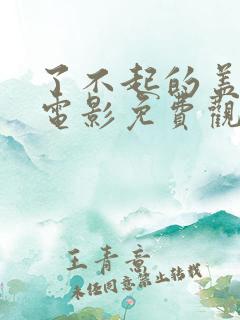 了不起的盖
電影免費觀
王青意
未经同意禁止转载